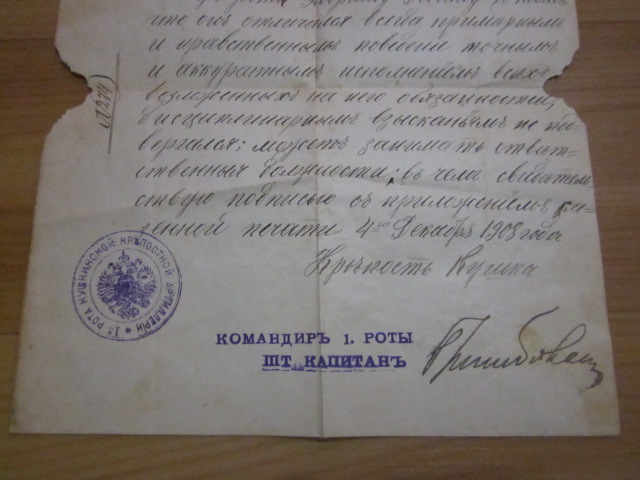 что онъ отличался всегда примѣрнымъ
и нравственнымъ поведені точнымъ
и аккуратнымъ исполненіемъ всѣхъ
возложенныхъ на него обязанностей,
дисциплинарнымъ взысканіямъ не под-
вергался; можетъ занимать отвѣт-
ственныя должности; въ чемъ свидѣтель-
ствую подписью съ приложеніемъ ка-
зенной печати 4го Декабря 1908 года
Крѣпость Кушка
№ 279
1я РОТА КУШКИНСКОЙ КРѢПОСТНОЙ АРТИЛЛЕРІИ
КОМАНДИРЪ 1. РОТЫ
ШТ. КАПИТАНЪ